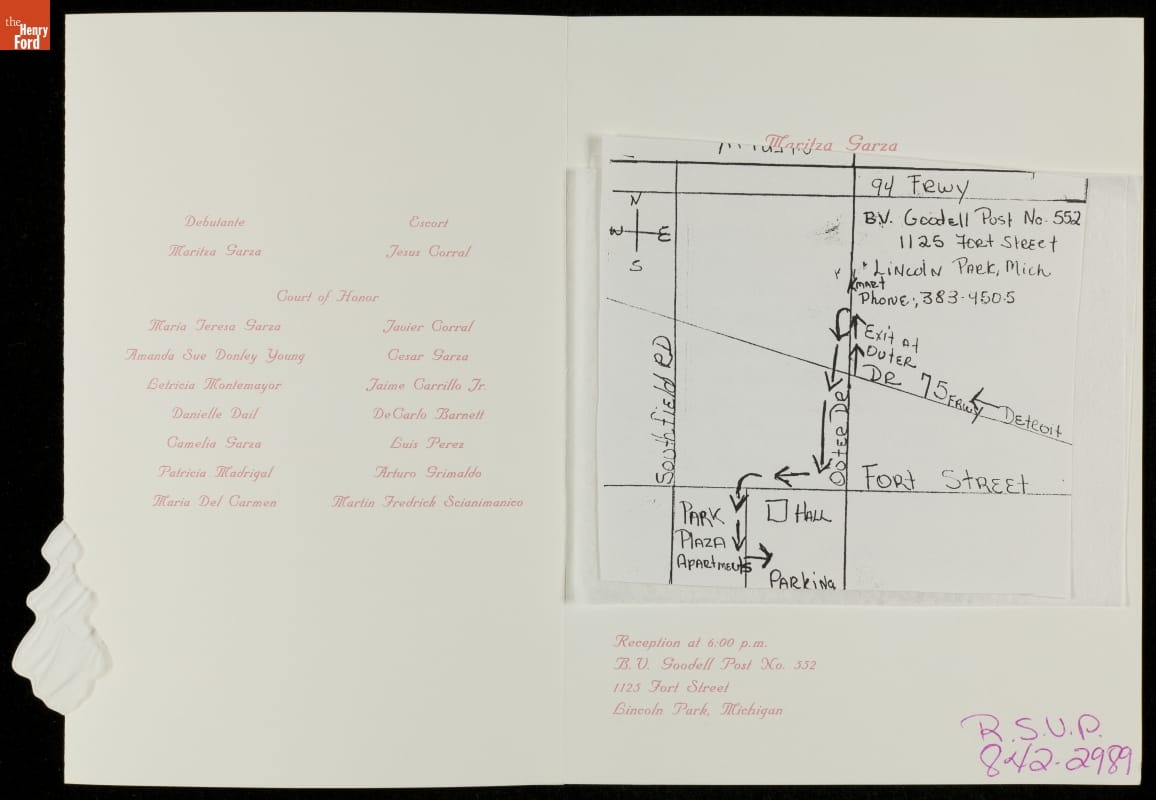 the
Henry
Ford
Debutante Escort
Maritza Garza Jesus Corral
Court of Honor
Maria Teresa Garza Javier Corral
Amanda Sue Donley Young Cesar Garza
Letricia Montemayor Jaime Carrillo Jr.
Danielle Dail DeCarlo Barnett
Camelia Garza Luis Perez
Patricia Madrigal Arturo Grimaldo
Maria Del Carmen Martin Fredrick Scianimanico
Maritza Garza
94 Frwy
N
W E
S
B.V. Goodell Post No. 552
1125 Fort Street
Lincoln Park, Mich
Phone; 383-4505
Kmart
Exit at
Outer
DR
75 Frwy
Detroit
Southfield RD
Outer Dr.
Fort Street
Park
Plaza
Apartments
Hall
Parking
Reception at 6:00 p.m.
B.V. Goodell Post No. 552
1125 Fort Street
Lincoln Park, Michigan
R.S.V.P.
842-2989